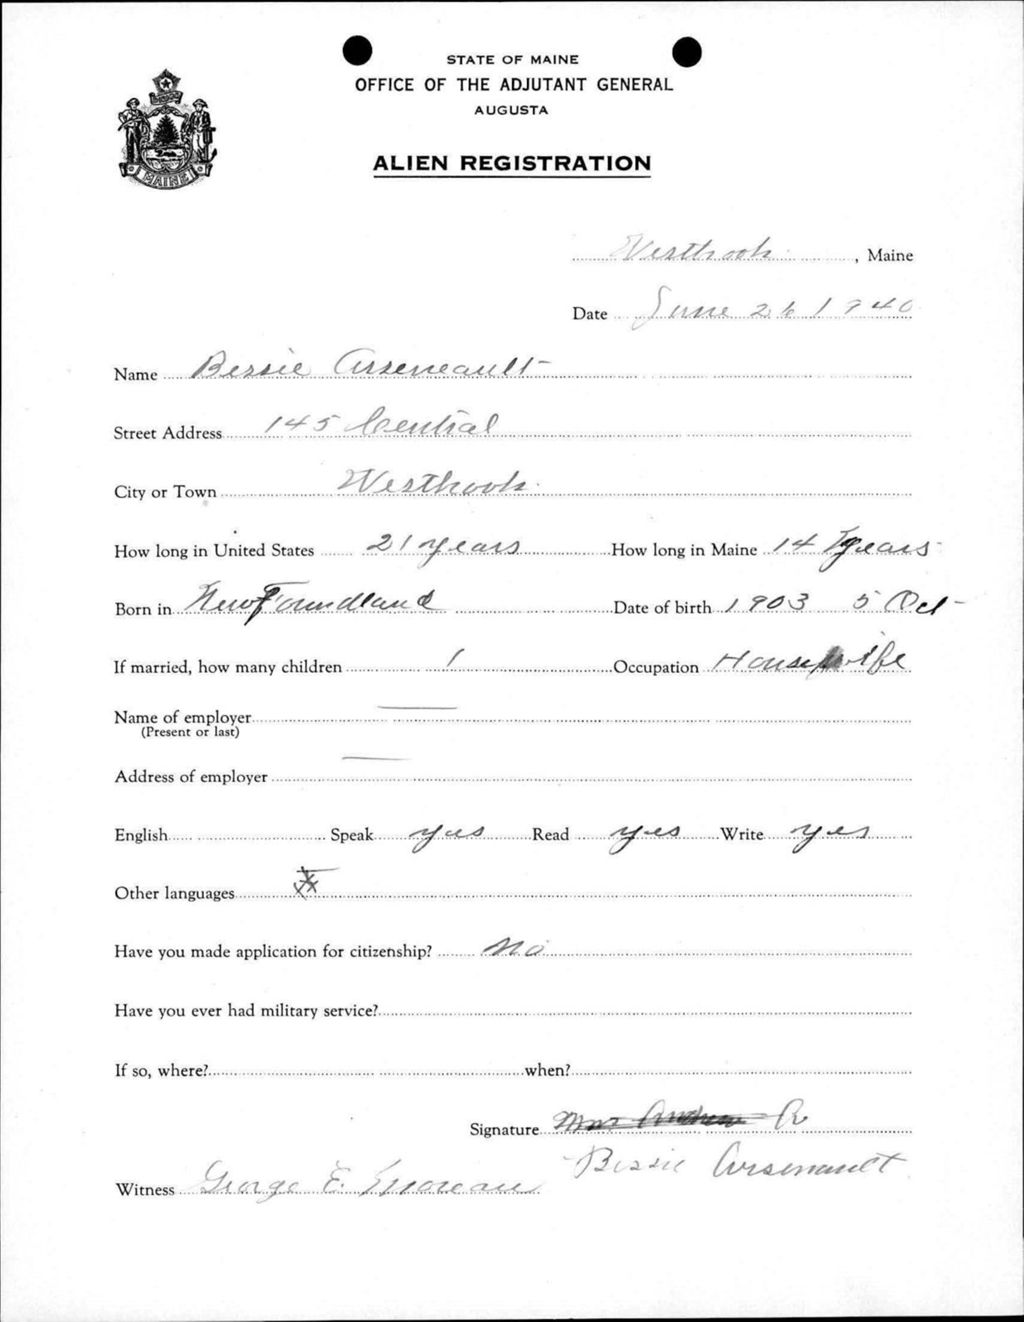 STATE OF MAINE
OFFICE OF THE ADJUTANT GENERAL
AUGUSTA
MAINE
ALIEN REGISTRATION
Westbrook, Maine
Date June 26 1940
Name Bessie Arseneault
Street Address 145 Central
City or Town Westbrook
How long in United States 21 years How long in Maine 14 years
Born in Newfoundland Date of birth 1903 5 Oct
If married, how many children 1 Occupation Housewife
Name of employer —
(Present or last)
Address of employer —
English Speak yes Read yes Write yes
Other languages
Have you made application for citizenship? No
Have you ever had military service?
If so, where? when?
Signature Mrs Andrew A
Bessie Arsenault
Witness George E. Moreau